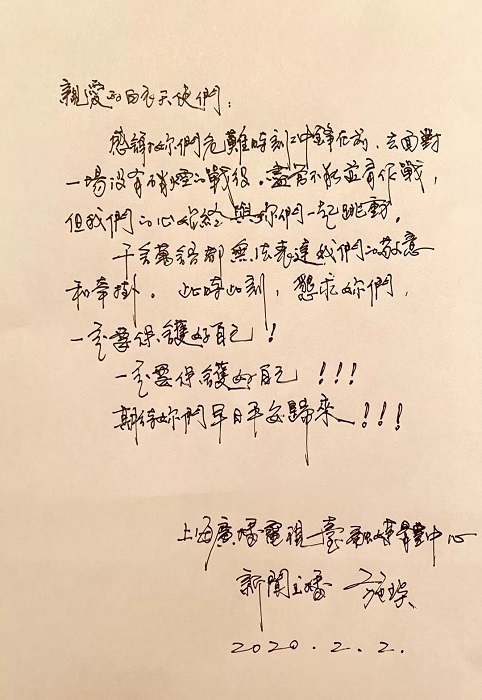 親愛的白衣天使們：
感謝妳們危難時刻沖鋒在前，去面對
一場没有硝煙的戰役。盡管不能並肩作戰，
但我們的心始終與妳們一起跳動。
千言萬語都無法表達我們的敬意
和牽掛。此時此刻，懇求妳們，
一定要保護好自己！
一定要保護好自己！！！
期待妳們早日平安歸來！！！
上海廣播電視臺融媒體中心
新聞主播 施琰
2020.2.2.